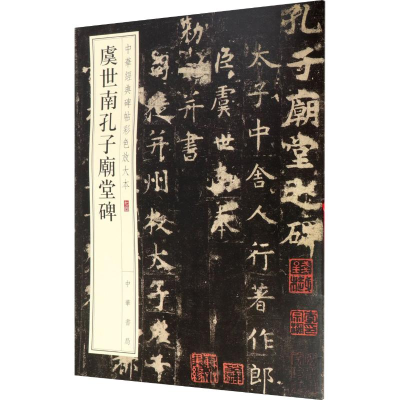 中華經典碑帖彩色放大本
虞世南孔子廟堂碑
中華書局
孔子廟堂之碑
太子中舍人行著作郎
臣虞世南奉
勑并書
司徒并州牧太子左